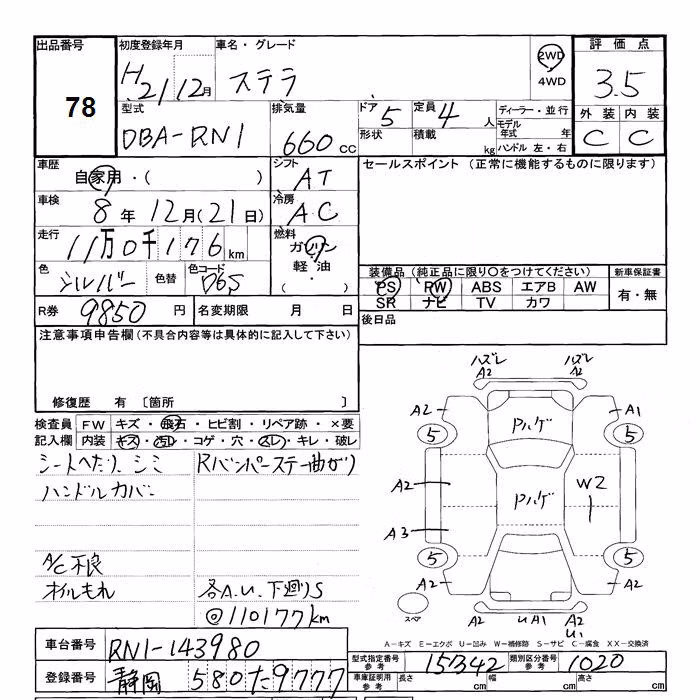 出品番号 初度登録年月 車名・グレード 2WD 評価点
78 H21 12月 ステラ 4WD 3.5
型式 排気量 ドア 5 定員 4 人 ディーラー・並行 外装 内装
DBA-RN1 660 CC 形状 積載 kg モデル年式 年 C C
ハンドル 左・右
車歴 自家用・( ) シフト AT セールスポイント (正常に機能するものに限ります)
車検 8年 12月(21日) 冷房 A.C
走行 11万0千176km 燃料 ガソリン
軽油
( ・ )
色 シルバー 色替 色コード D6S 装備品(純正品に限り○をつけてください) 新車保証書
PS PW ABS エアB AW 有・無
SR ナビ TV カワ
R券 9850 円 名変期限 月 日 後日品
注意事項申告欄(不具合内容等は具体的に記入して下さい)
修復歴 有 〔箇所 〕
検査員 FW キズ・飛石・ヒビ割・リペア跡・×要
記入欄 内装 キズ・汚レ・コゲ・穴・スレ・キレ・破レ
シートへたり、シミ Rバンパーステー曲がり
ハンドルカバー
A/C不良
オイルもれ 各A.U.下廻りS
@110177km
ハズレ ハズレ
A2 A2
A2 Pハゲ A1
5 5
A2 Pハゲ W2
A3
5 5
A2 A2
スペア U A1 A2
U1
A-キズ E-エクボ U-凹み W-補修跡 S-サビ C-腐食 XX-交換済
車台番号 RN1-143980
型式指定番号 参考 15342 類別区分番号 参考 1020
登録番号 静岡 580 た 9777
車庫証明用 参考 長さ cm 幅 cm 高さ cm